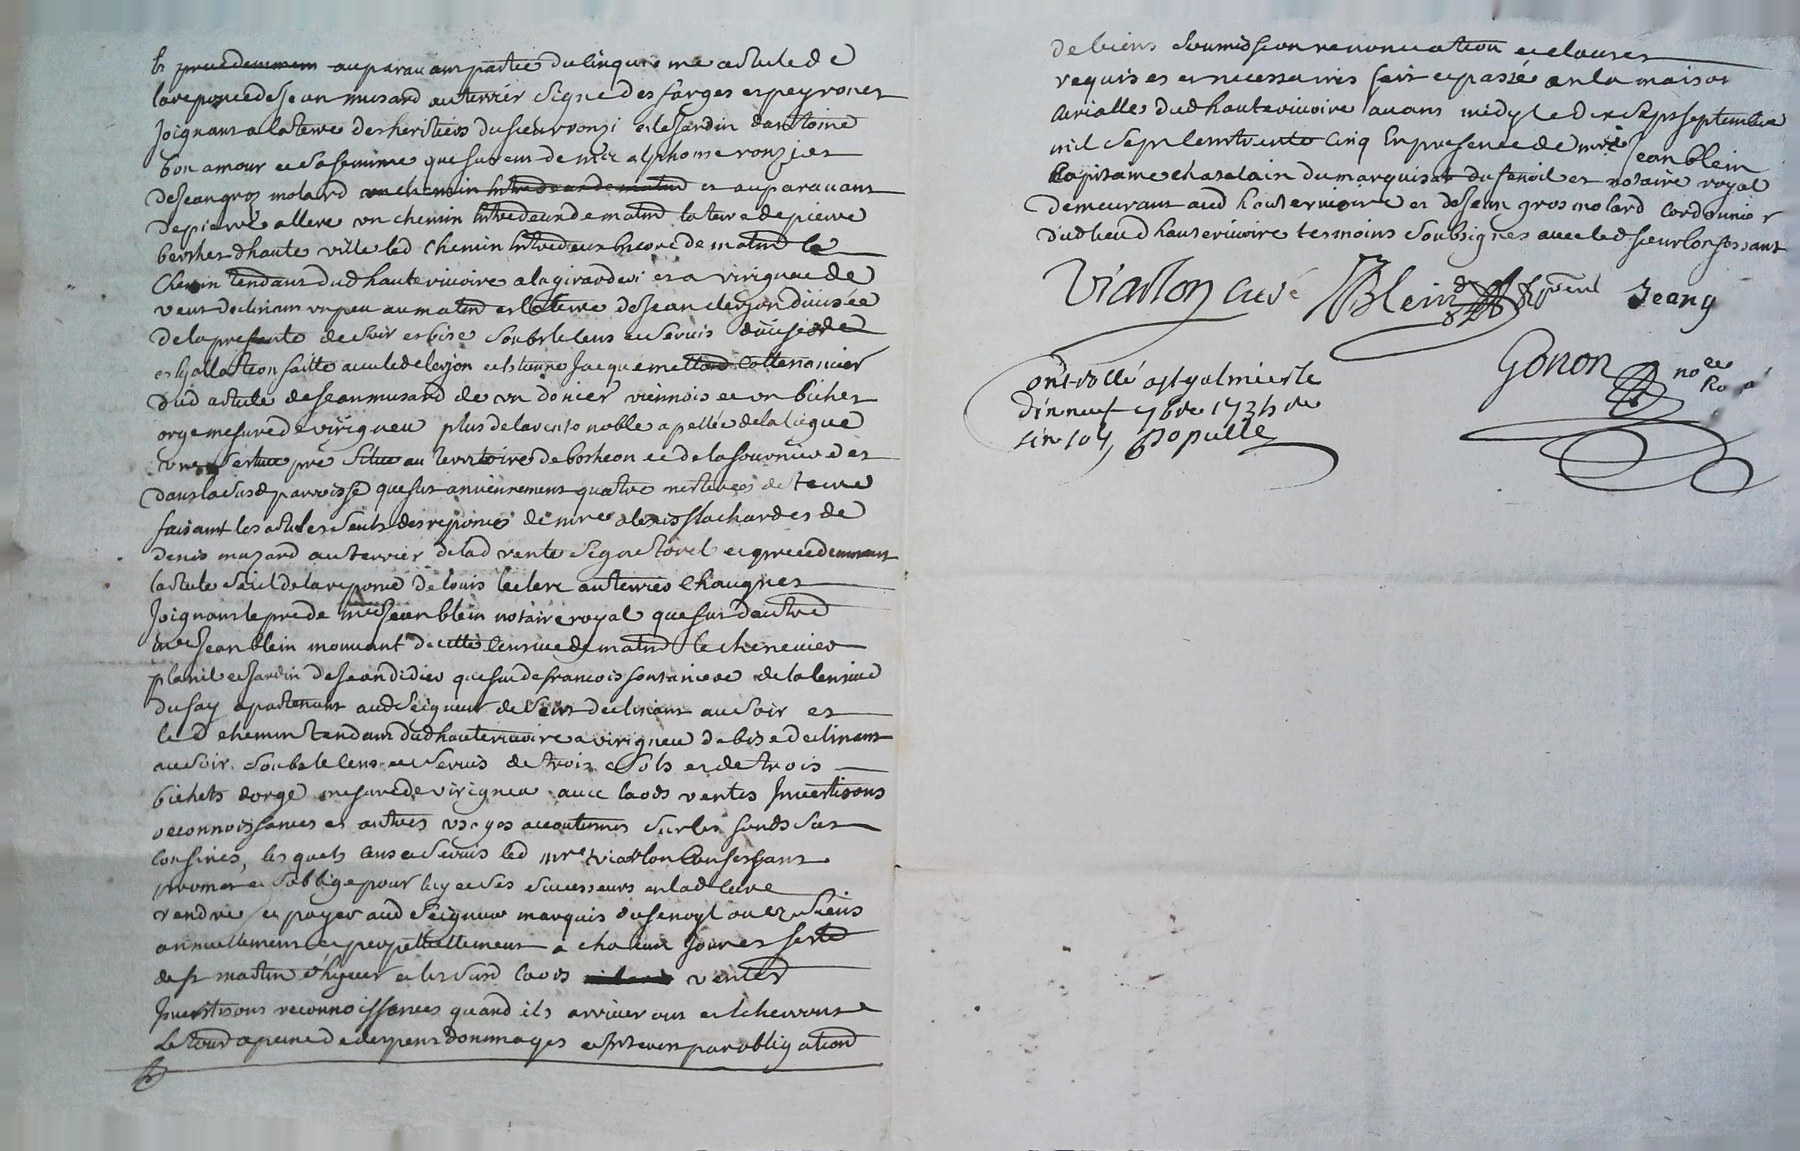 et precedemment auparavant partie du cinquieme article de
la reponce de Jean musard au terrier signé des farges et peyronet
Joignant a la terre des heritiers du sieur ronzi et le Jardin dantoine
bon amour et sa femme que fut de mre alphonse ronzier
de Jean gros molard et auparavant
de pierre allere un chemin entredeux de matin la terre de pierre
berther d'haute ville led chemin entredeux encore de matin le
Chemin tendant dud hauterivoire a la girarderi et a virigneu de
vent declinant un peu au matin et la terre de Jean clerjon divisée
de la presente de soir et bise soubs le cens et servis divisé de
et egallation faitte avec led clerjon et etienne Jacquemettond Cottenancier
dud article de Jean musard de un denier viennois et un bichet
orge mesure de virigneu plus de la rente noble apellée de la ligue
une pré situé au territoire de bosheon et de la fourniere et
dans lad sud parroisse que fut anciennement quatre mesterées de terre
faisant les articles seuls des reponces de mre alexis flachard et de
denis muzard au terrier de lad rente signé torel et precedemment
larticle seul de la reponce de louis leclerc au terrier Chaugnes
Joignant le pré de mre Jean blein notaire royal que fut d'autre
mre Jean blein mouvant de cette censive de matin le chenevier
planil et Jardin de Jean didier que fut de francois fontaniere de la censive
du fay apartenant aud Seigneur de vent declinant au soir et
led chemin tendant dud hauterivoire a virigneu de bise declinant
au soir soubs le cens et servis de trois sols et de trois
bichets d'orge mesure de virigneu avec laods ventes Investisons
reconnoissances et autres usages accoutumés sur les fonds sus
confinés, les quels cens et servis led mre viallon Confessant
promet et s'obblige pour luy et ses successeurs en lad cure
rendre et payer aud Seigneur marquis du fenoyl ou ez siens
annuellement et perpetuellement a chacun Jour et feste
de st martin d'hyver et les susd laods ventes
Investisons reconnoissances quand ils arriveront et echerront
Le tout a peine de de depens dommages et Interets par obligation
de biens soumission renonciation et clauses
requises et necessaires fait et passé en la maison
curialle dud hauterivoire avant midy le dix sept septembre
mil sept cent trente cinq En presence de mre Jean blein
Capitaine chatelain du marquisat du fenoil et notaire royal
demeurant aud hauterivoire et de Jean gros molard cordonnier
dud lieu d'hauterivoire tesmoins soubsignés avec led sieur Confessant
Viallon curé Blein Jean g
Gonon nore Ro
Controllé a st galmier le
dix neuf 7bre 1735 R
six sols Populle